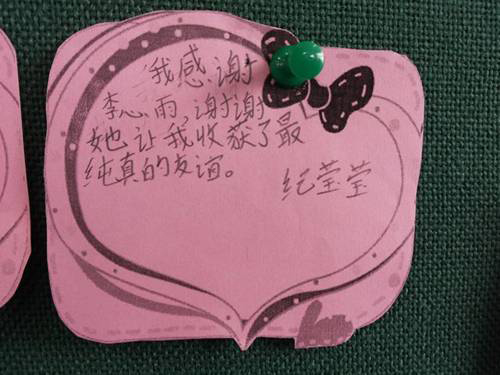 我感谢
李思雨,谢谢
她让我收获了最
纯真的友谊。
纪莹莹